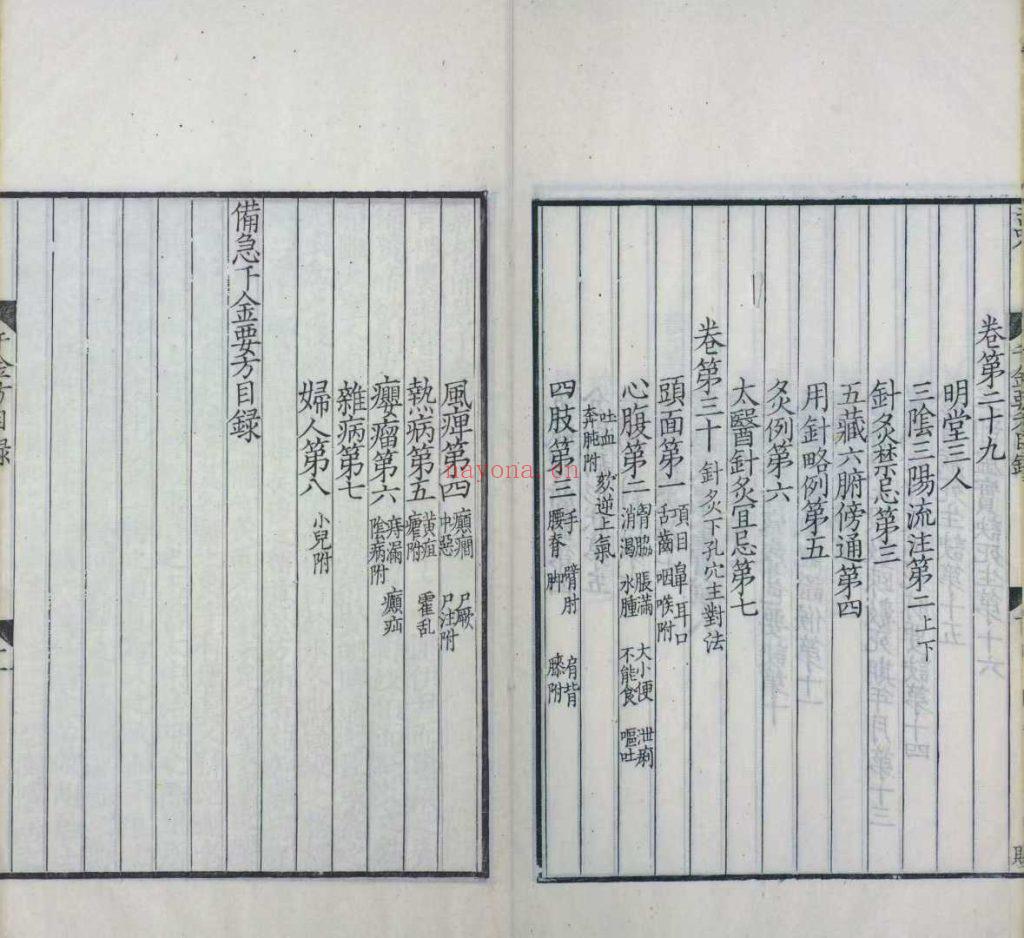 卷第二十九
明堂三人
三陰三陽流注第二上下
針灸禁忌第三
五藏六腑傍通第四
用針略例第五
灸例第六
太醫針灸宜忌第七
卷第三十 針灸下孔穴主對法
頭面第一 項目鼻耳口舌齒咽喉附
心腹第二 胷脇脹滿大小便泄痢消渴水腫不能食嘔吐
吐血欬逆上氣奔肫附
四肢第三 手臂肘肩背腰脊脚膝附
風痹第四 癲癇尸厥中惡尸注附
熱病第五 黃疸霍乱瘧附
癭瘤第六 痔漏癲疝陰病附
雜病第七
婦人第八 小兒附
備急千金要方目録
千金方目録
nayona.cn